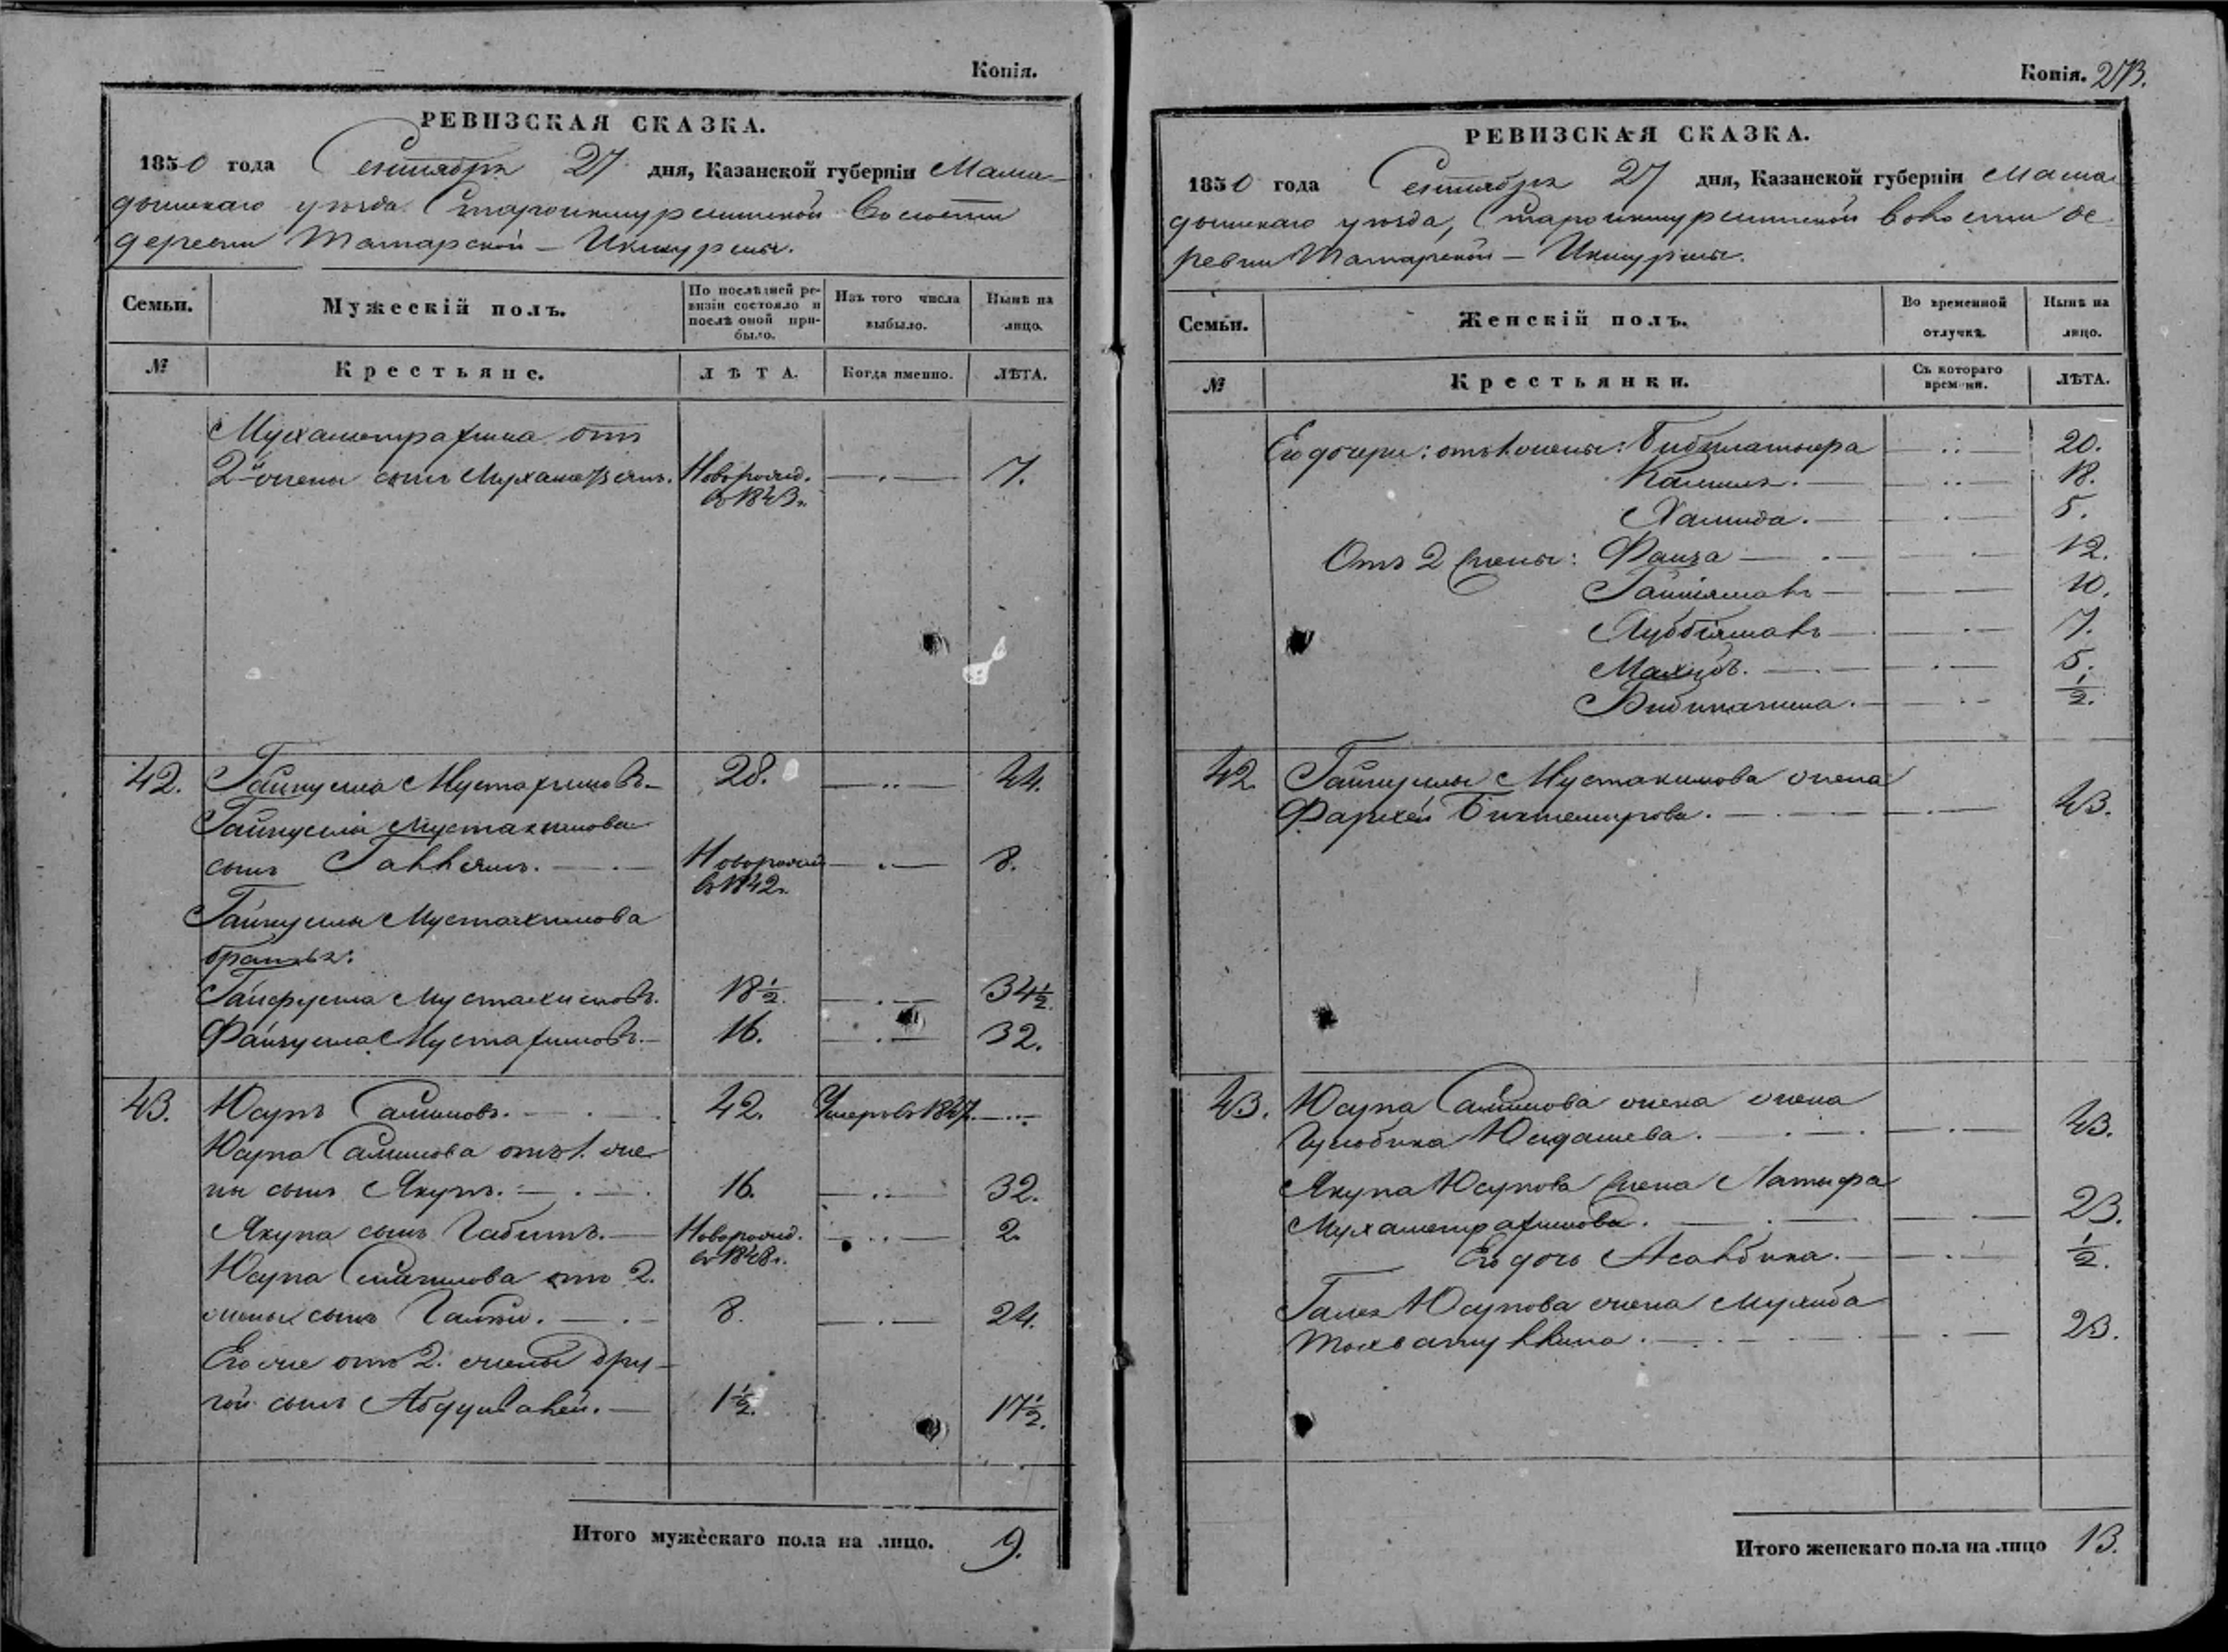 Копія.
РЕВИЗСКАЯ СКАЗКА.
1850 года Сентября 27 дня, Казанской губерніи Мама-
дышскаго уѣзда Староикшурминской Волости
деревни Татарской – Икшурмы.
Семьи.
Мужескій полъ.
По послѣдней ре-
визіи состояло и
послѣ оной при-
было.
Изъ того числа
выбыло.
Нынѣ на
лицо.
№
Крестьяне.
ЛѢТА.
Когда именно.
ЛѢТА.
Мухаметрахима отъ
2й жены сынъ Новорожд. 7.
въ 1843 г.
42. Гайнулла Мустакимовъ 28. 44.
Гайнуллы Мустакимова
сынъ Новорожд 8.
въ 1842 г.
Гайнуллы Мустакимова
братья:
Гайфулла Мустакимовъ. 18 1/2. 34 1/2.
Файзулла Мустакимовъ. 16. 32.
43. Юсупъ Салимовъ. 42. Умеръ въ 1847.
Юсупа Салимова отъ 1. же-
ны сынъ Якупъ. 16. 32.
Якупа сынъ Габитъ. Новорожд. 2.
въ 1848 г.
Юсупа Салимова отъ 2.
жены сынъ 8. 24.
Его же отъ 2. жены дру-
гой сынъ 1 1/2. 17 1/2.
Итого мужескаго пола на лицо. 9.
Копія. 273.
РЕВИЗСКАЯ СКАЗКА.
1850 года Сентября 27 дня, Казанской губерніи Мама-
дышскаго уѣзда, Староикшурминской волости де-
ревни Татарской – Икшурмы.
Семьи.
Женскій полъ.
Во временной
отлучкѣ.
Нынѣ на
лицо.
№
Крестьянки.
Съ котораго
времени.
ЛѢТА.
Его дочери: отъ 1 жены: 20.
Камиля. 18.
Хамида. 5.
Отъ 2 жены: Фаиза 12.
10.
7.
5.
1/2.
42 Гайнуллы Мустакимова жена
Биктемирова. 43.
43. Юсупа Салимова жена жена
Гулюбика Юлдашева. 43.
Якупа Юсупова жена Латыфа
Мухаметрахимова. 23.
Его дочь 1/2.
Юсупова жена
23.
Итого женскаго пола на лицо 13.